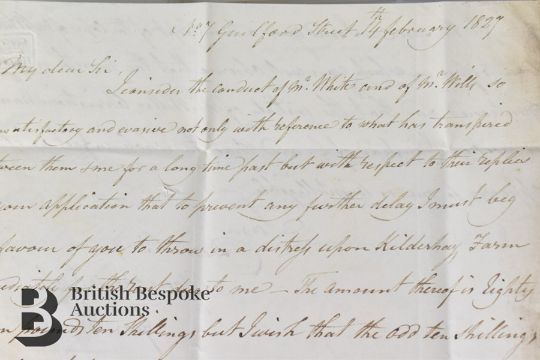 No. 7 Guilford Street 14th February 1827
My dear Sir,
I consider the conduct of Mr. White and of Mr. Wills so
unsatisfactory and evasive not only with reference to what has transpired
tween them & me for a long time past but with respect to their replies
your application that to prevent any further delay I must beg
favour of you to throw in a distress upon Kilderhay Farm
ediately for the rent due to me — The amount thereof is Eighty
n pounds ten Shillings but I wish that the odd ten Shillings
British Bespoke
Auctions